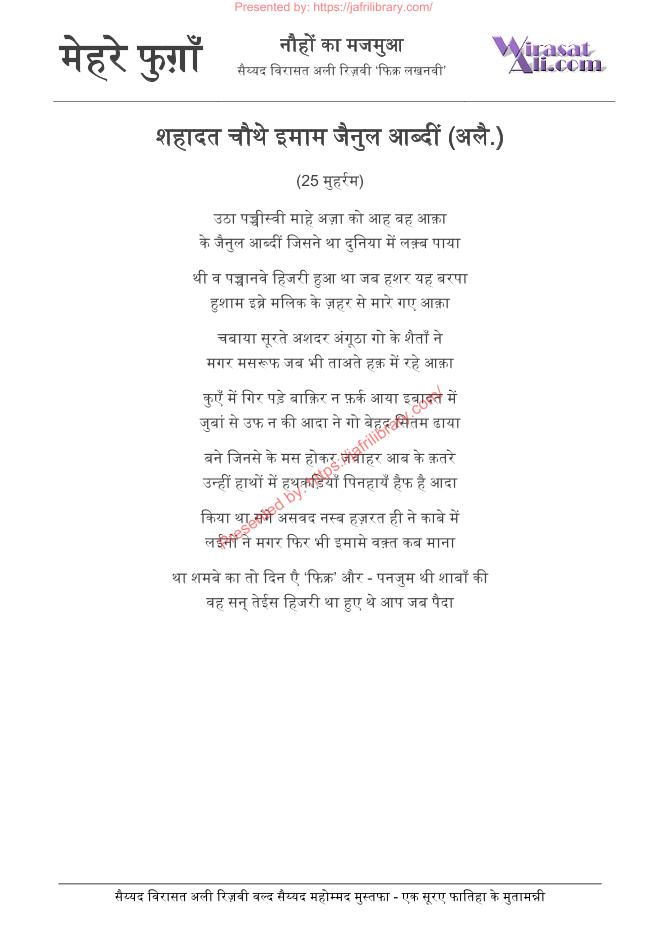 Presented by: https://jafrilibrary.com/
मेहरे फुग़ाँ
नौहों का मजमुआ
सैय्यद विरासत अली रिज़वी ‘फिक्र लखनवी’
Wirasat
Ali.com
शहादत चौथे इमाम जैनुल आब्दीं (अलै.)
(25 मुहर्रम)
उठा पच्चीस्वी माहे अज़ा को आह वह आक़ा
के जैनुल आब्दीं जिसने था दुनिया में लक़्ब पाया
थी व पञ्चानवे हिजरी हुआ था जब हशर यह बरपा
हुशाम इब्ने मलिक के ज़हर से मारे गए आक़ा
चबाया सूरते अशदर अंगूठा गो के शैताँ ने
मगर मसरूफ जब भी ताअते हक़ में रहे आक़ा
कुएँ में गिर पड़े बाक़िर न फ़र्क आया इबादत में
जुबां से उफ न की आदा ने गो बेहद सितम ढाया
बने जिनसे के मस होकर जवाहर आब के क़तरे
उन्हीं हाथों में हथकड़ियाँ पिनहायँ हैफ है आदा
किया था संगे असवद नस्ब हज़रत ही ने काबे में
लईनों ने मगर फिर भी इमामे वक़्त कब माना
था शमबे का तो दिन एै ‘फिक्र’ और - पनजुम थी शाबाँ की
वह सन् तेईस हिजरी था हुए थे आप जब पैदा
Presented by: https://jafrilibrary.com/
सैय्यद विरासत अली रिज़वी वल्द सैय्यद महोम्मद मुस्तफा - एक सूरए फातिहा के मुतामन्नी